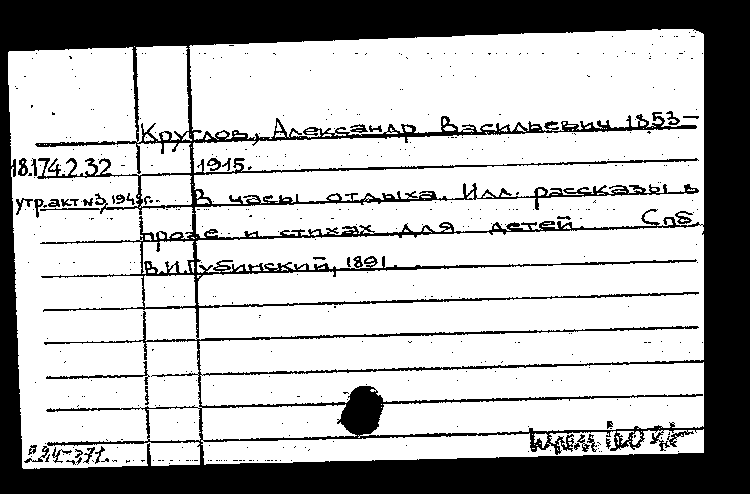 Круглов, Александр Васильевич 1853-
18.174.2.32 1915.
утр.акт №3, 1949г. В часы отдыха. Илл. рассказы в
прозе и стихах для детей. Спб,
В.И.Губинский, 1891.
224-371.